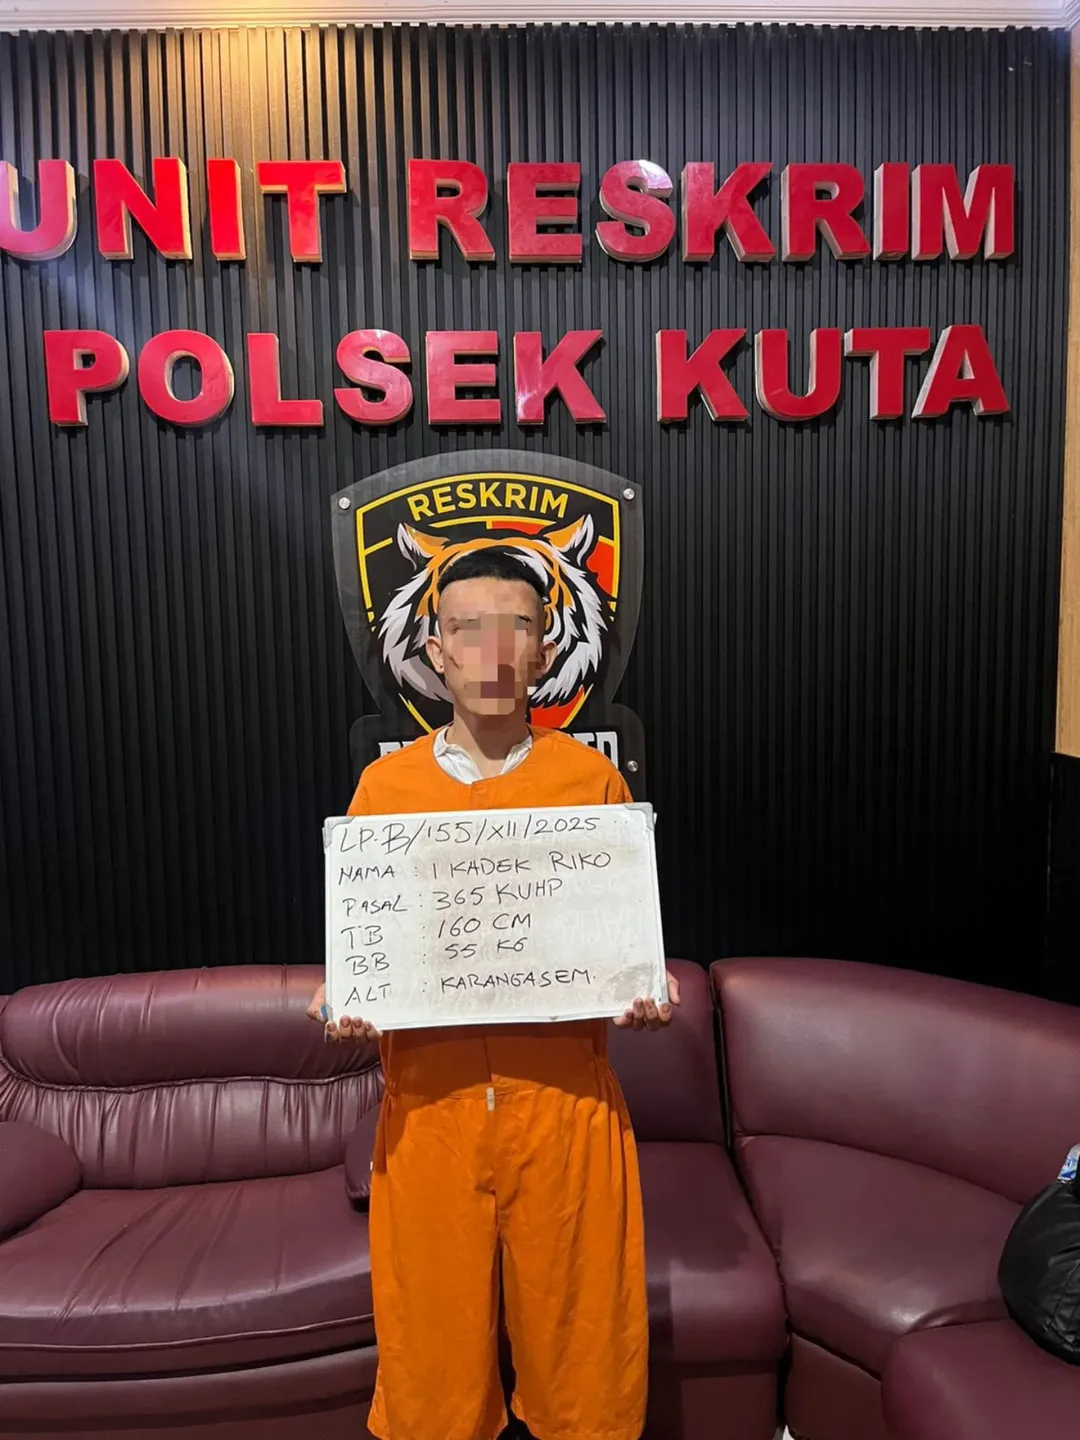 UNIT RESKRIM
POLSEK KUTA
RESKRIM
LP.B/155/XII/2025
NAMA : I KADEK RIKO
PASAL : 365 KUHP
TB : 160 CM
BB : 55 KG
ALT : KARANGASEM.